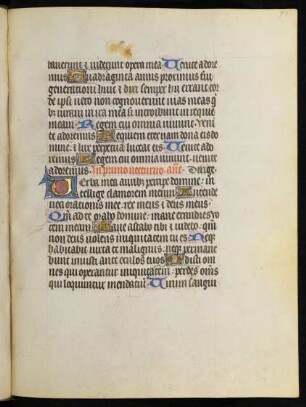 bauerunt et uiderunt opera mea Uenite adore
mus Quadraginta annis proximus fui
generationi huic et dixi semper hii errant cor
de ipsi uero non cognouerunt uias meas q̄
bȝ iuraui in ira mea si introibunt in requiē
meam Regem cui omnia uiuunt ueni
te adoremus Requiem eternam dona eis do
mine et lux perpetua luceat eis Uenite ado
remus Regem cui omnia uiuunt uenite
adoremus In primo nocturno añ Dirige
Uerba mea auribȝ percipe domine in
tellige clamorem meum Intende
uoci orationis mee rex meus et deus meus
Qm̄ ad te orabo domine mane exaudies uo
cem meam Mane astabo tibi et uidebo qm̄
non deus uolens iniquitatem tu es Neqȝ
habitabit iuxta te malignus neqȝ permane
bunt iniusti ante oculos tuos Odisti om
nes qui operantur iniquitatem perdes om̄s
qui loquuntur mendatiū Uirum sangui